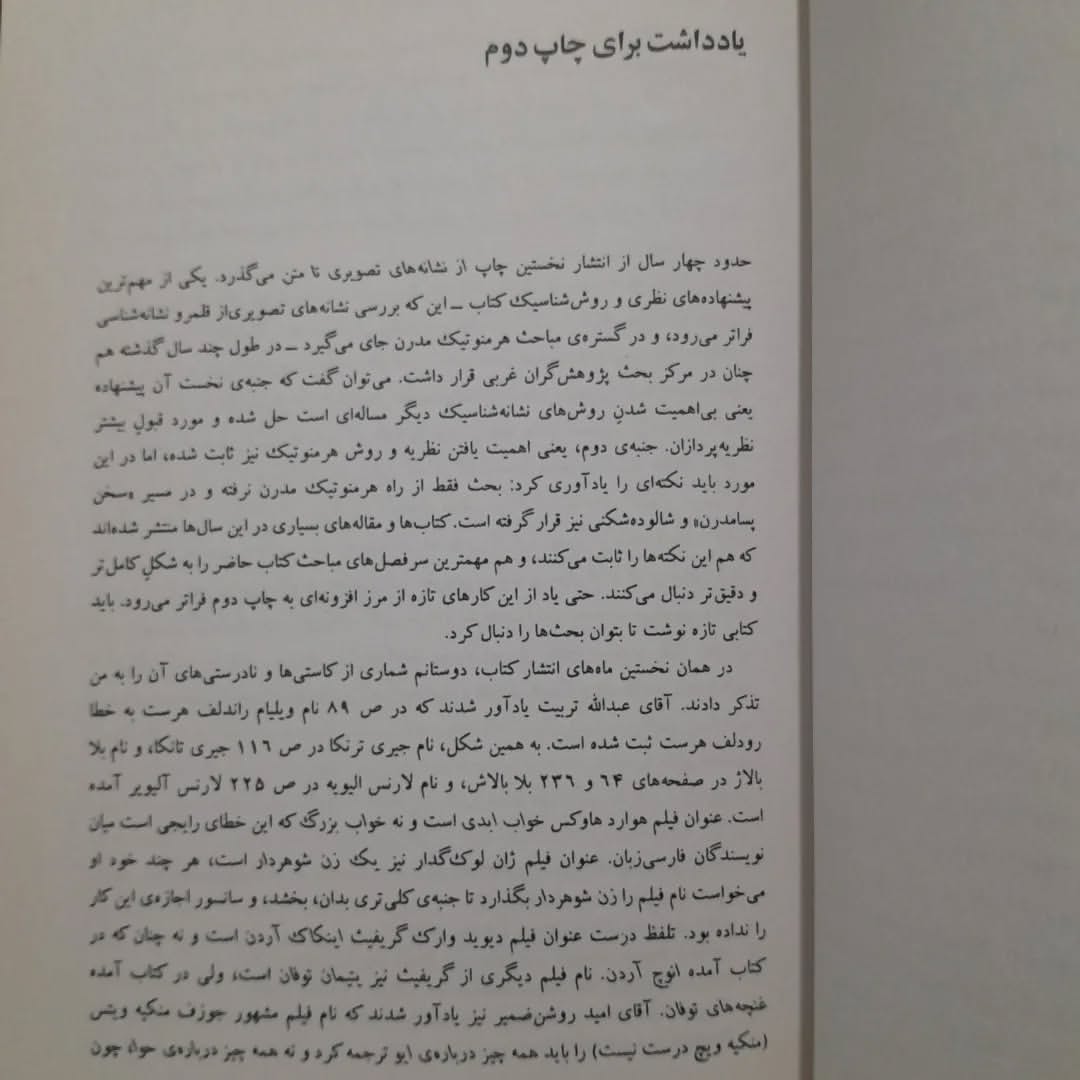 یادداشت برای چاپ دوم
حدود چهار سال از انتشار نخستین چاپ از نشانه‌های تصویری تا متن می‌گذرد. یکی از مهم‌ترین
پیشنهاده‌های نظری و روش‌شناسیک کتاب ــ این که بررسی نشانه‌های تصویری از قلمرو نشانه‌شناسی
فراتر می‌رود، و در گستره‌ی مباحث هرمنوتیک مدرن جای می‌گیرد ــ در طول چند سال گذشته هم
چنان در مرکز بحث پژوهش‌گران غربی قرار داشت. می‌توان گفت که جنبه‌ی نخست آن پیشنهاده
یعنی بی‌اهمیت شدنِ روش‌های نشانه‌شناسیک دیگر مساله‌ای است حل شده و مورد قبولِ بیشتر
نظریه‌پردازان. جنبه‌ی دوم، یعنی اهمیت یافتن نظریه و روش هرمنوتیک نیز ثابت شده، اما در این
مورد باید نکته‌ای را یادآوری کرد: بحث فقط از راه هرمنوتیک مدرن نرفته و در مسیر «سخن
پسامدرن» و شالوده‌شکنی نیز قرار گرفته است. کتاب‌ها و مقاله‌های بسیاری در این سال‌ها منتشر شده‌اند
که هم این نکته‌ها را ثابت می‌کنند، و هم مهمترین سرفصل‌های مباحث کتاب حاضر را به شکلِ کامل‌تر
و دقیق‌تر دنبال می‌کنند. حتی یاد از این کارهای تازه از مرز افزونه‌ای به چاپ دوم فراتر می‌رود. باید
کتابی تازه نوشت تا بتوان بحث‌ها را دنبال کرد.
در همان نخستین ماه‌های انتشار کتاب، دوستانم شماری از کاستی‌ها و نادرستی‌های آن را به من
تذکر دادند. آقای عبدالله تربیت یادآور شدند که در ص ۸۹ نام ویلیام راندلف هرست به خطا
رودلف هرست ثبت شده است. به همین شکل، نام جیری ترنکا در ص ۱۱۶ جیری تانکا، و نام بلا
بالاژ در صفحه‌های ۶۴ و ۲۳۶ بلا بالاش، و نام لارنس الیویه در ص ۲۲۵ لارنس آلیویر آمده
است. عنوان فیلم هوارد هاوکس خواب ابدی است و نه خواب بزرگ که این خطای رایجی است میان
نویسندگان فارسی‌زبان. عنوان فیلم ژان لوک‌گدار نیز یک زن شوهردار است، هر چند خود او
می‌خواست نام فیلم را زن شوهردار بگذارد تا جنبه‌ی کلی‌تری بدان، بخشد، و سانسور اجازه‌ی این کار
را نداده بود. تلفظ درست عنوان فیلم دیوید وارک گریفیث اینکاک آردن است و نه چنان که در
کتاب آمده انوچ آردن. نام فیلم دیگری از گریفیث نیز یتیمان توفان است، ولی در کتاب آمده
غنچه‌های توفان. آقای امید روشن‌ضمیر نیز یادآور شدند که نام فیلم مشهور جوزف منکیه ویتس
(منکیه ویچ درست نیست) را باید همه چیز درباره‌ی ایو ترجمه کرد و نه همه چیز درباره‌ی حوا، چون